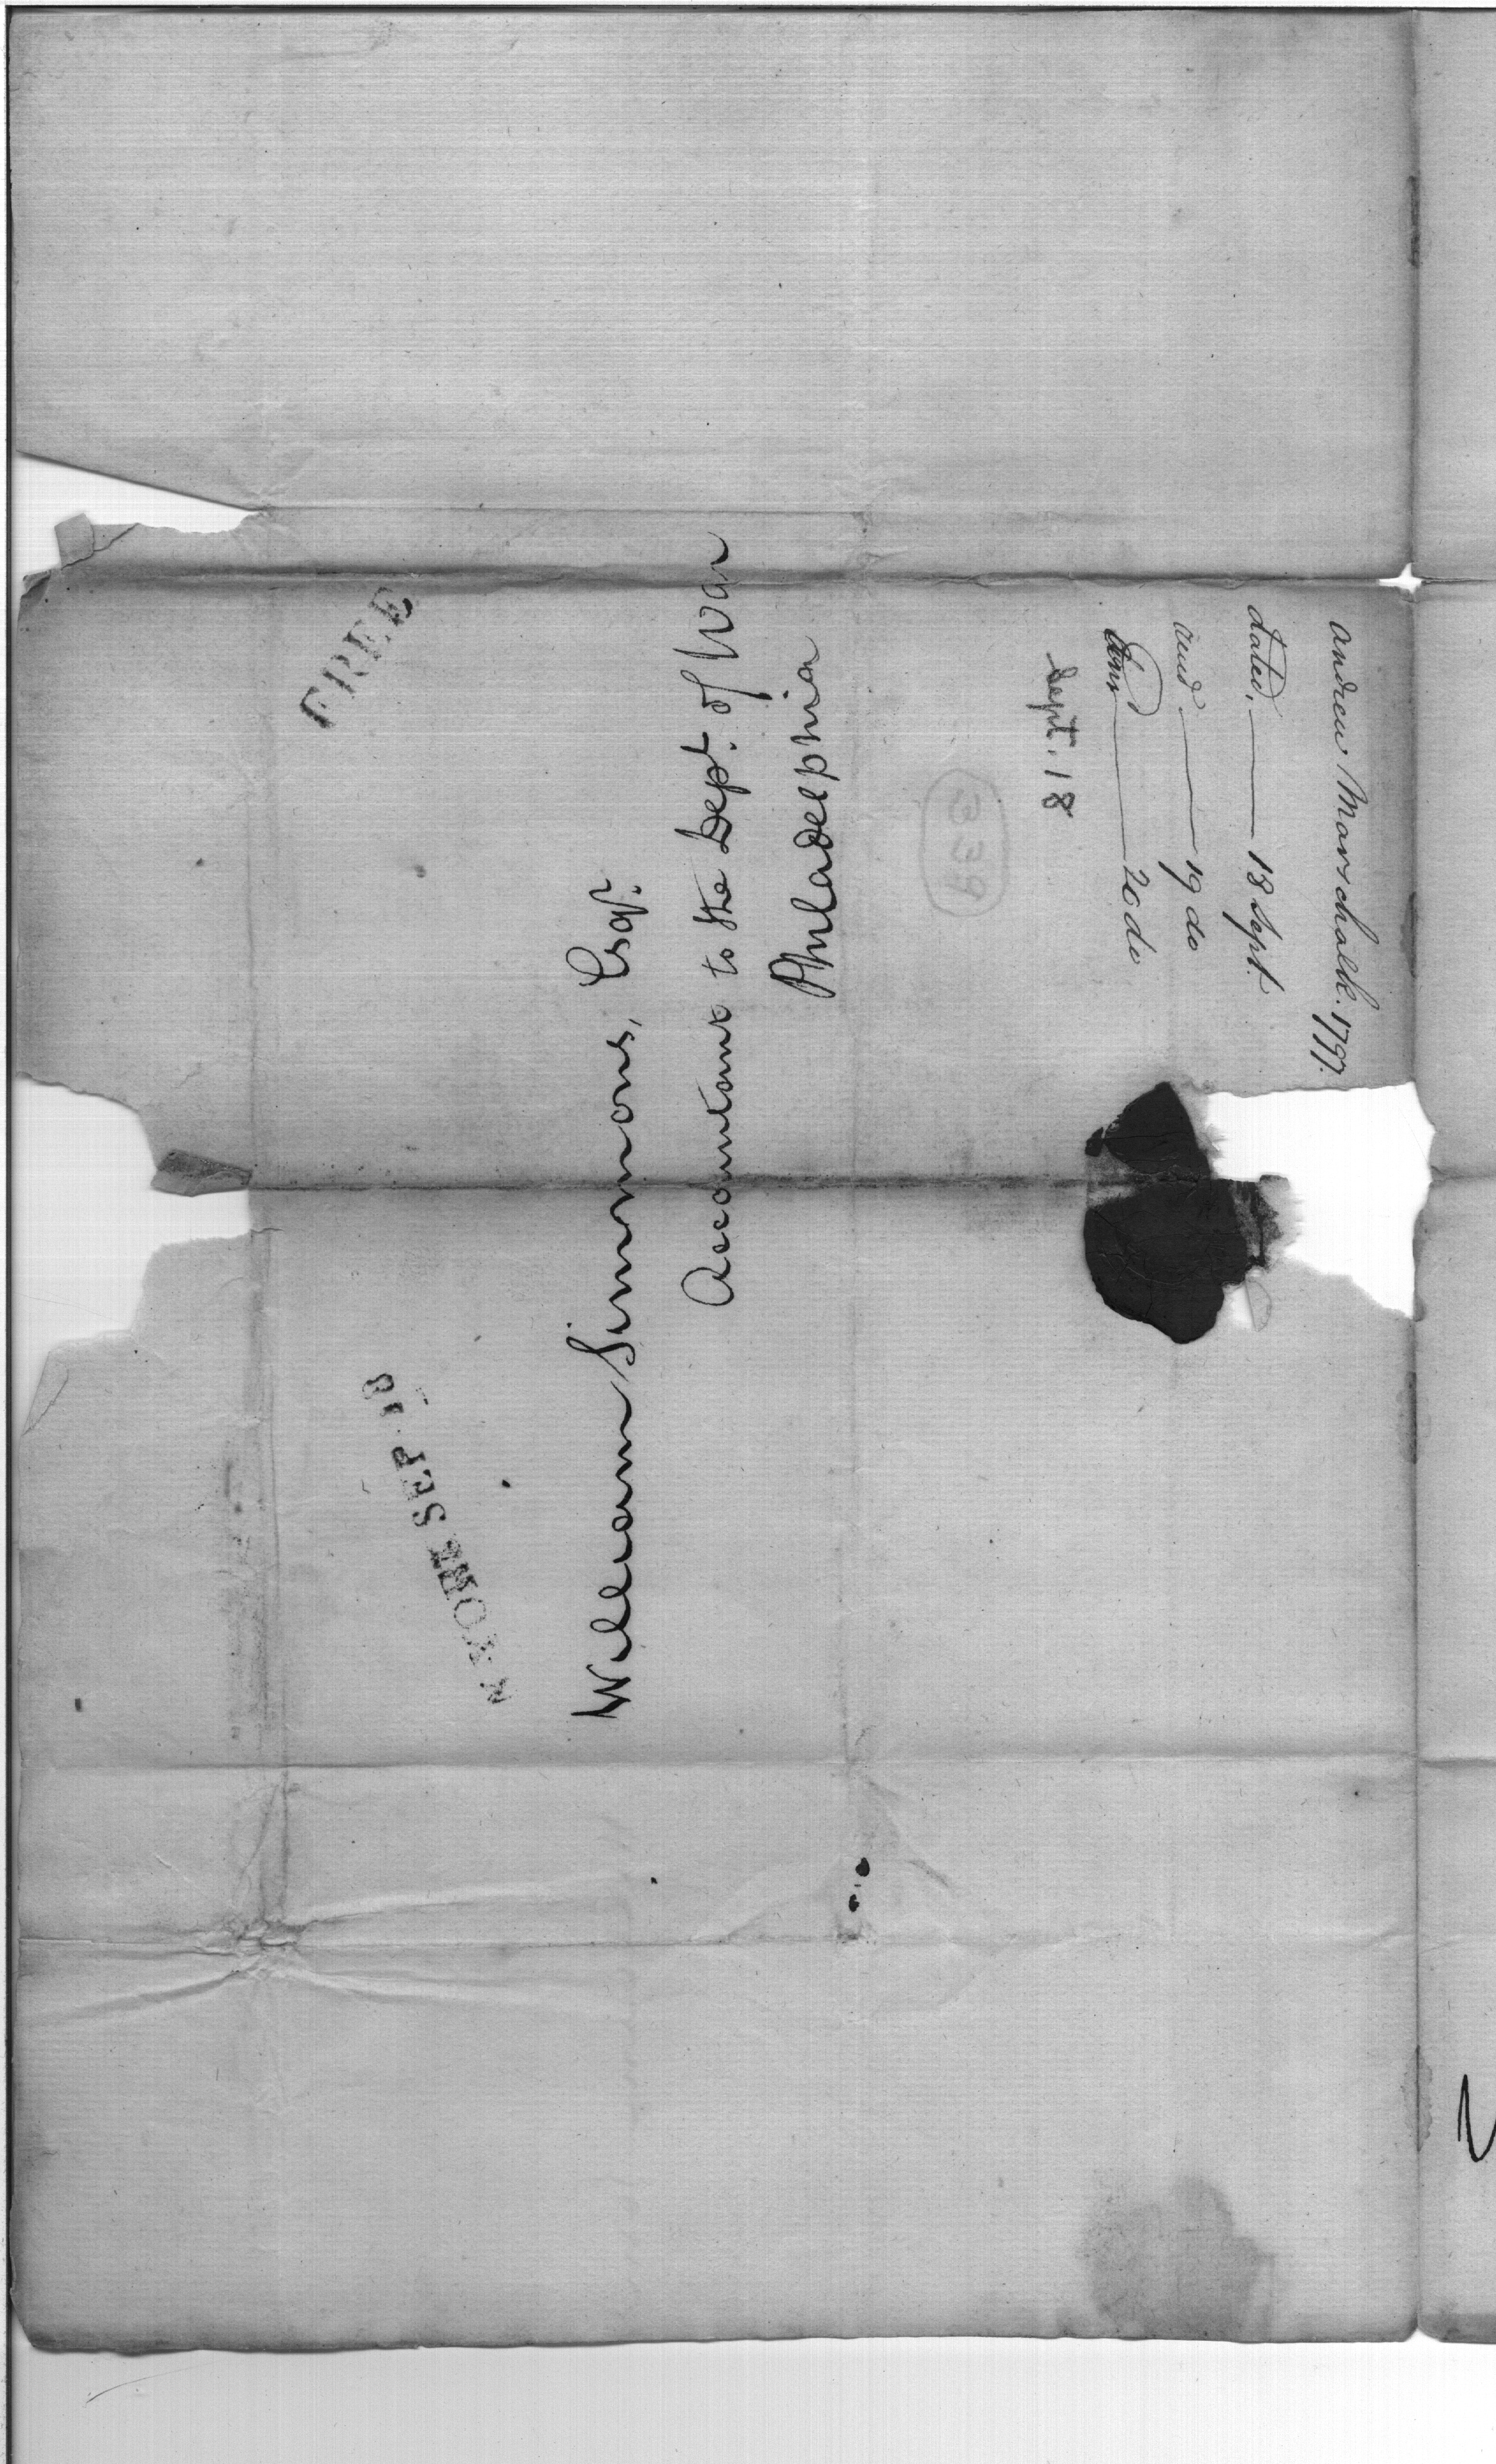 FREE
N. YORK SEP 18
William Simmons, Esqr.
Accountant to the Dept. of War
Philadelphia
Andrew Marschalk. 1797.
dated, —— 18 Sept.
and —— 19 do
—— 20 do
Sept. 18
339